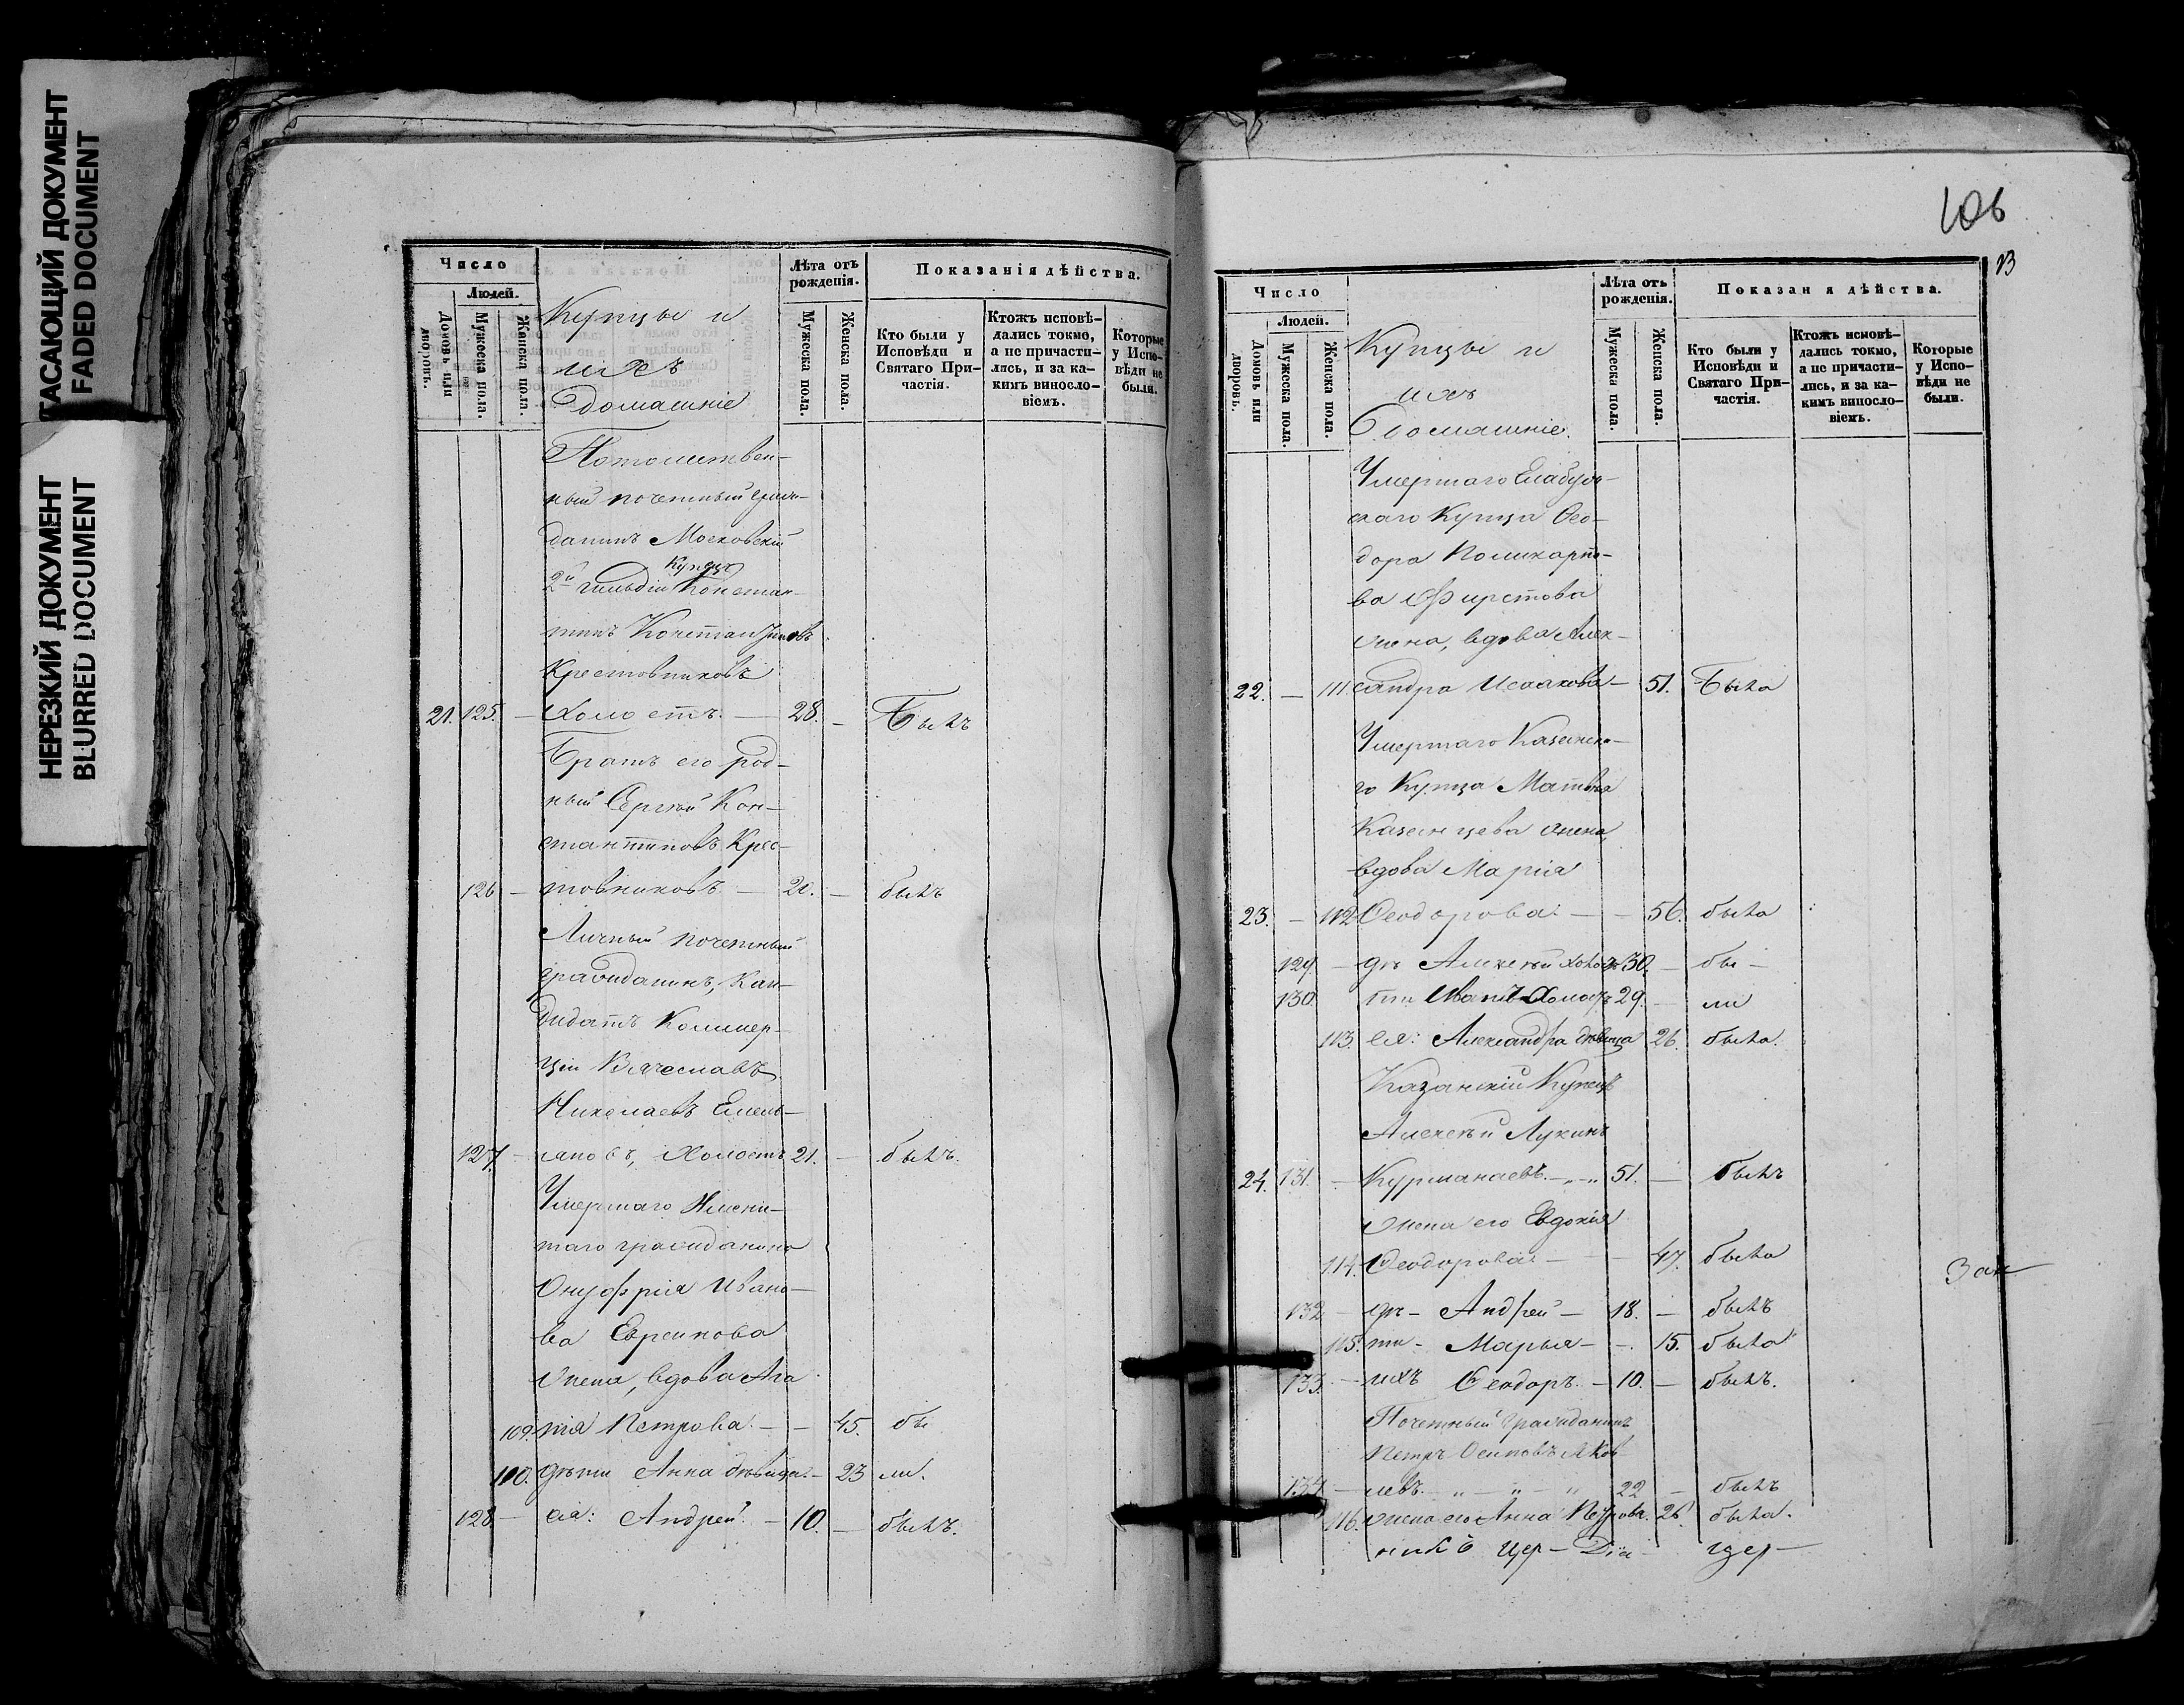 ГАСАЮЩИЙ ДОКУМЕНТ
FADED DOCUMENT
НЕРЕЗКИЙ ДОКУМЕНТ
BLURRED DOCUMENT
Число
Людей.
Домовъ или дворовъ.
Мужеска пола.
Женска пола.
Купцы и
ихъ
домашніе
Лѣта отъ рожденія.
Мужеска пола.
Женска пола.
Показанія дѣйства.
Кто были у Исповѣди и Святаго Причастія.
Ктожъ исповѣдались токмо, а не причастились, и за какимъ винословіемъ.
Которые у Исповѣди не были.
Потомствен-
ный почетный граж-
данинъ Московскій
Купецъ
2й гильдіи Констан-
тинъ Константиновъ
Крестовниковъ
21. 125. — холостъ. — 28. — Былъ
Братъ его род-
ный Сергѣй Кон-
стантиновъ Крес-
126 — товниковъ — 21. — былъ
Личный почетный
гражданинъ, Кан-
дидатъ Коммер-
ціи Вячеславъ
Николаевъ Емель-
127. — яновъ, холостъ 21. — былъ.
Умершаго Имени-
таго гражданина
Онуфрія Ивано-
ва Евреинова
жена, вдова Ага
109. пія Петрова. — — 45. бы
110. дѣти Анна дѣвица. — 23 ли.
128 — ея: Андрей. — 10. — былъ.
106
13
Число
Людей.
Домовъ или дворовъ.
Мужеска пола.
Женска пола.
Купцы и
ихъ
Домашніе.
Лѣта отъ рожденія.
Мужеска пола.
Женска пола.
Показан я дѣйства.
Кто были у Исповѣди и Святаго Причастія.
Ктожъ исповѣдались токмо, а не причастились, и за какимъ винословіемъ.
Которые у Исповѣди не были.
Умершаго Елабуж-
скаго Купца Ѳео-
дора Поликарпо-
ва Фирстова
жена, вдова Алек-
22. — 111 сандра Исаакова — 51. Была
Умершаго Казанска-
го Купца Матвѣя
Казанцева жена,
вдова Марія
23. — 112 Ѳеодорова. — — 56. была
129. — дѣ Алексѣй холостъ 30. — бы —
130. ти Иванъ холостъ 29. — ли
113. ея: Александра дѣвица 26. была.
Казанскій Купецъ
Алексѣй Лукинъ
24. 131. — Курманаевъ. — „ — „ 51. — былъ
жена его Евдокія
114. Ѳеодорова. — — 47. была
Зак
132 — дѣ — Андрей — 18. — былъ
115. ти — Марья — —. 15. была
133. — ихъ Ѳеодоръ. — 10. — былъ.
Почетный гражданинъ
Петръ Осиповъ Яков
134 — левъ. „ — „ — „ 22 — былъ
116. жена его Анна Петрова. 26. была.
никъ Цер — Діа — цер —